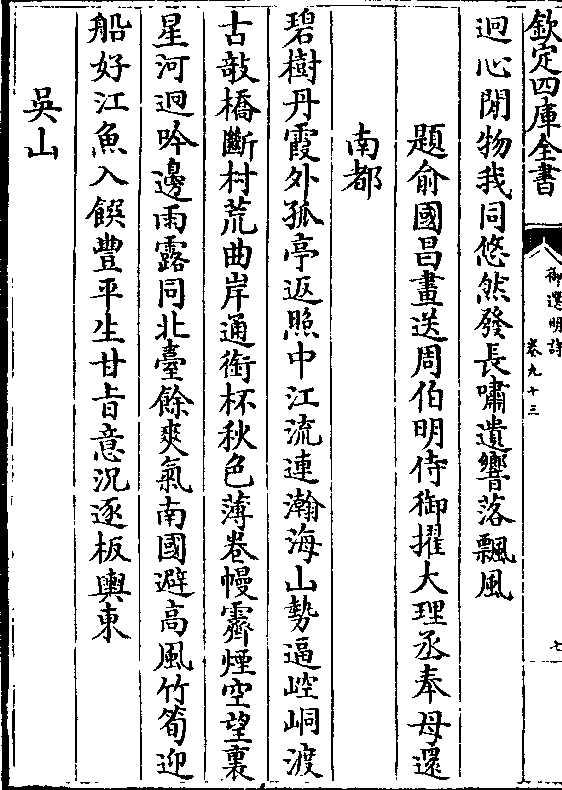 欽定四庫全書
御選明詩
卷九十三
七
迥心閒物我同悠然發長嘯遺響落飄風
題俞國昌畫送周伯明侍御擢大理丞奉母還
南都
碧樹丹霞外孤亭返照中江流連瀚海山勢逼崆峒渡
古敧橋斷村荒曲岸通銜杯秋色薄卷幔霽煙空望裏
星河迥吟邊雨露同北臺餘爽氣南國避高風竹筍迎
船好江魚入饌豐平生甘旨意況逐板輿東
吳山